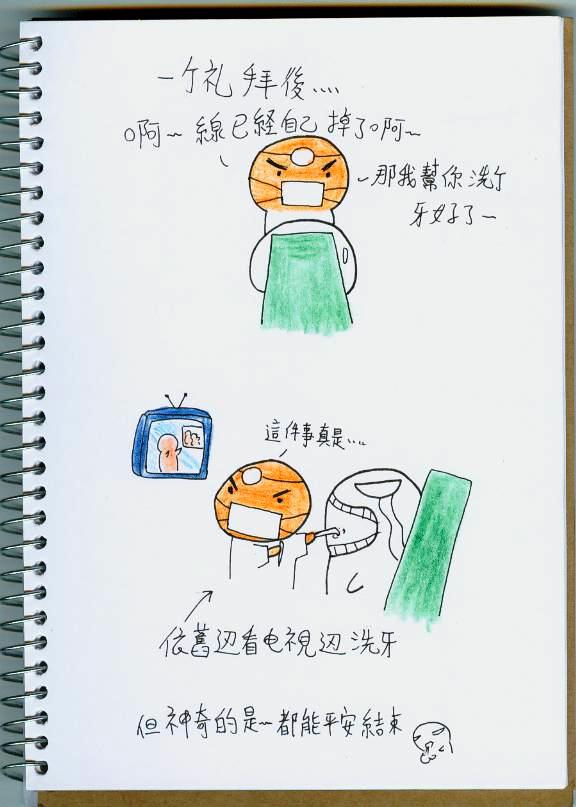 一个礼拜後....
啊~ 線已経自己掉了啊~
那我幫你洗个
牙好了~
這件事真是....
依舊边看电視边洗牙
但神奇的是~都能平安結束